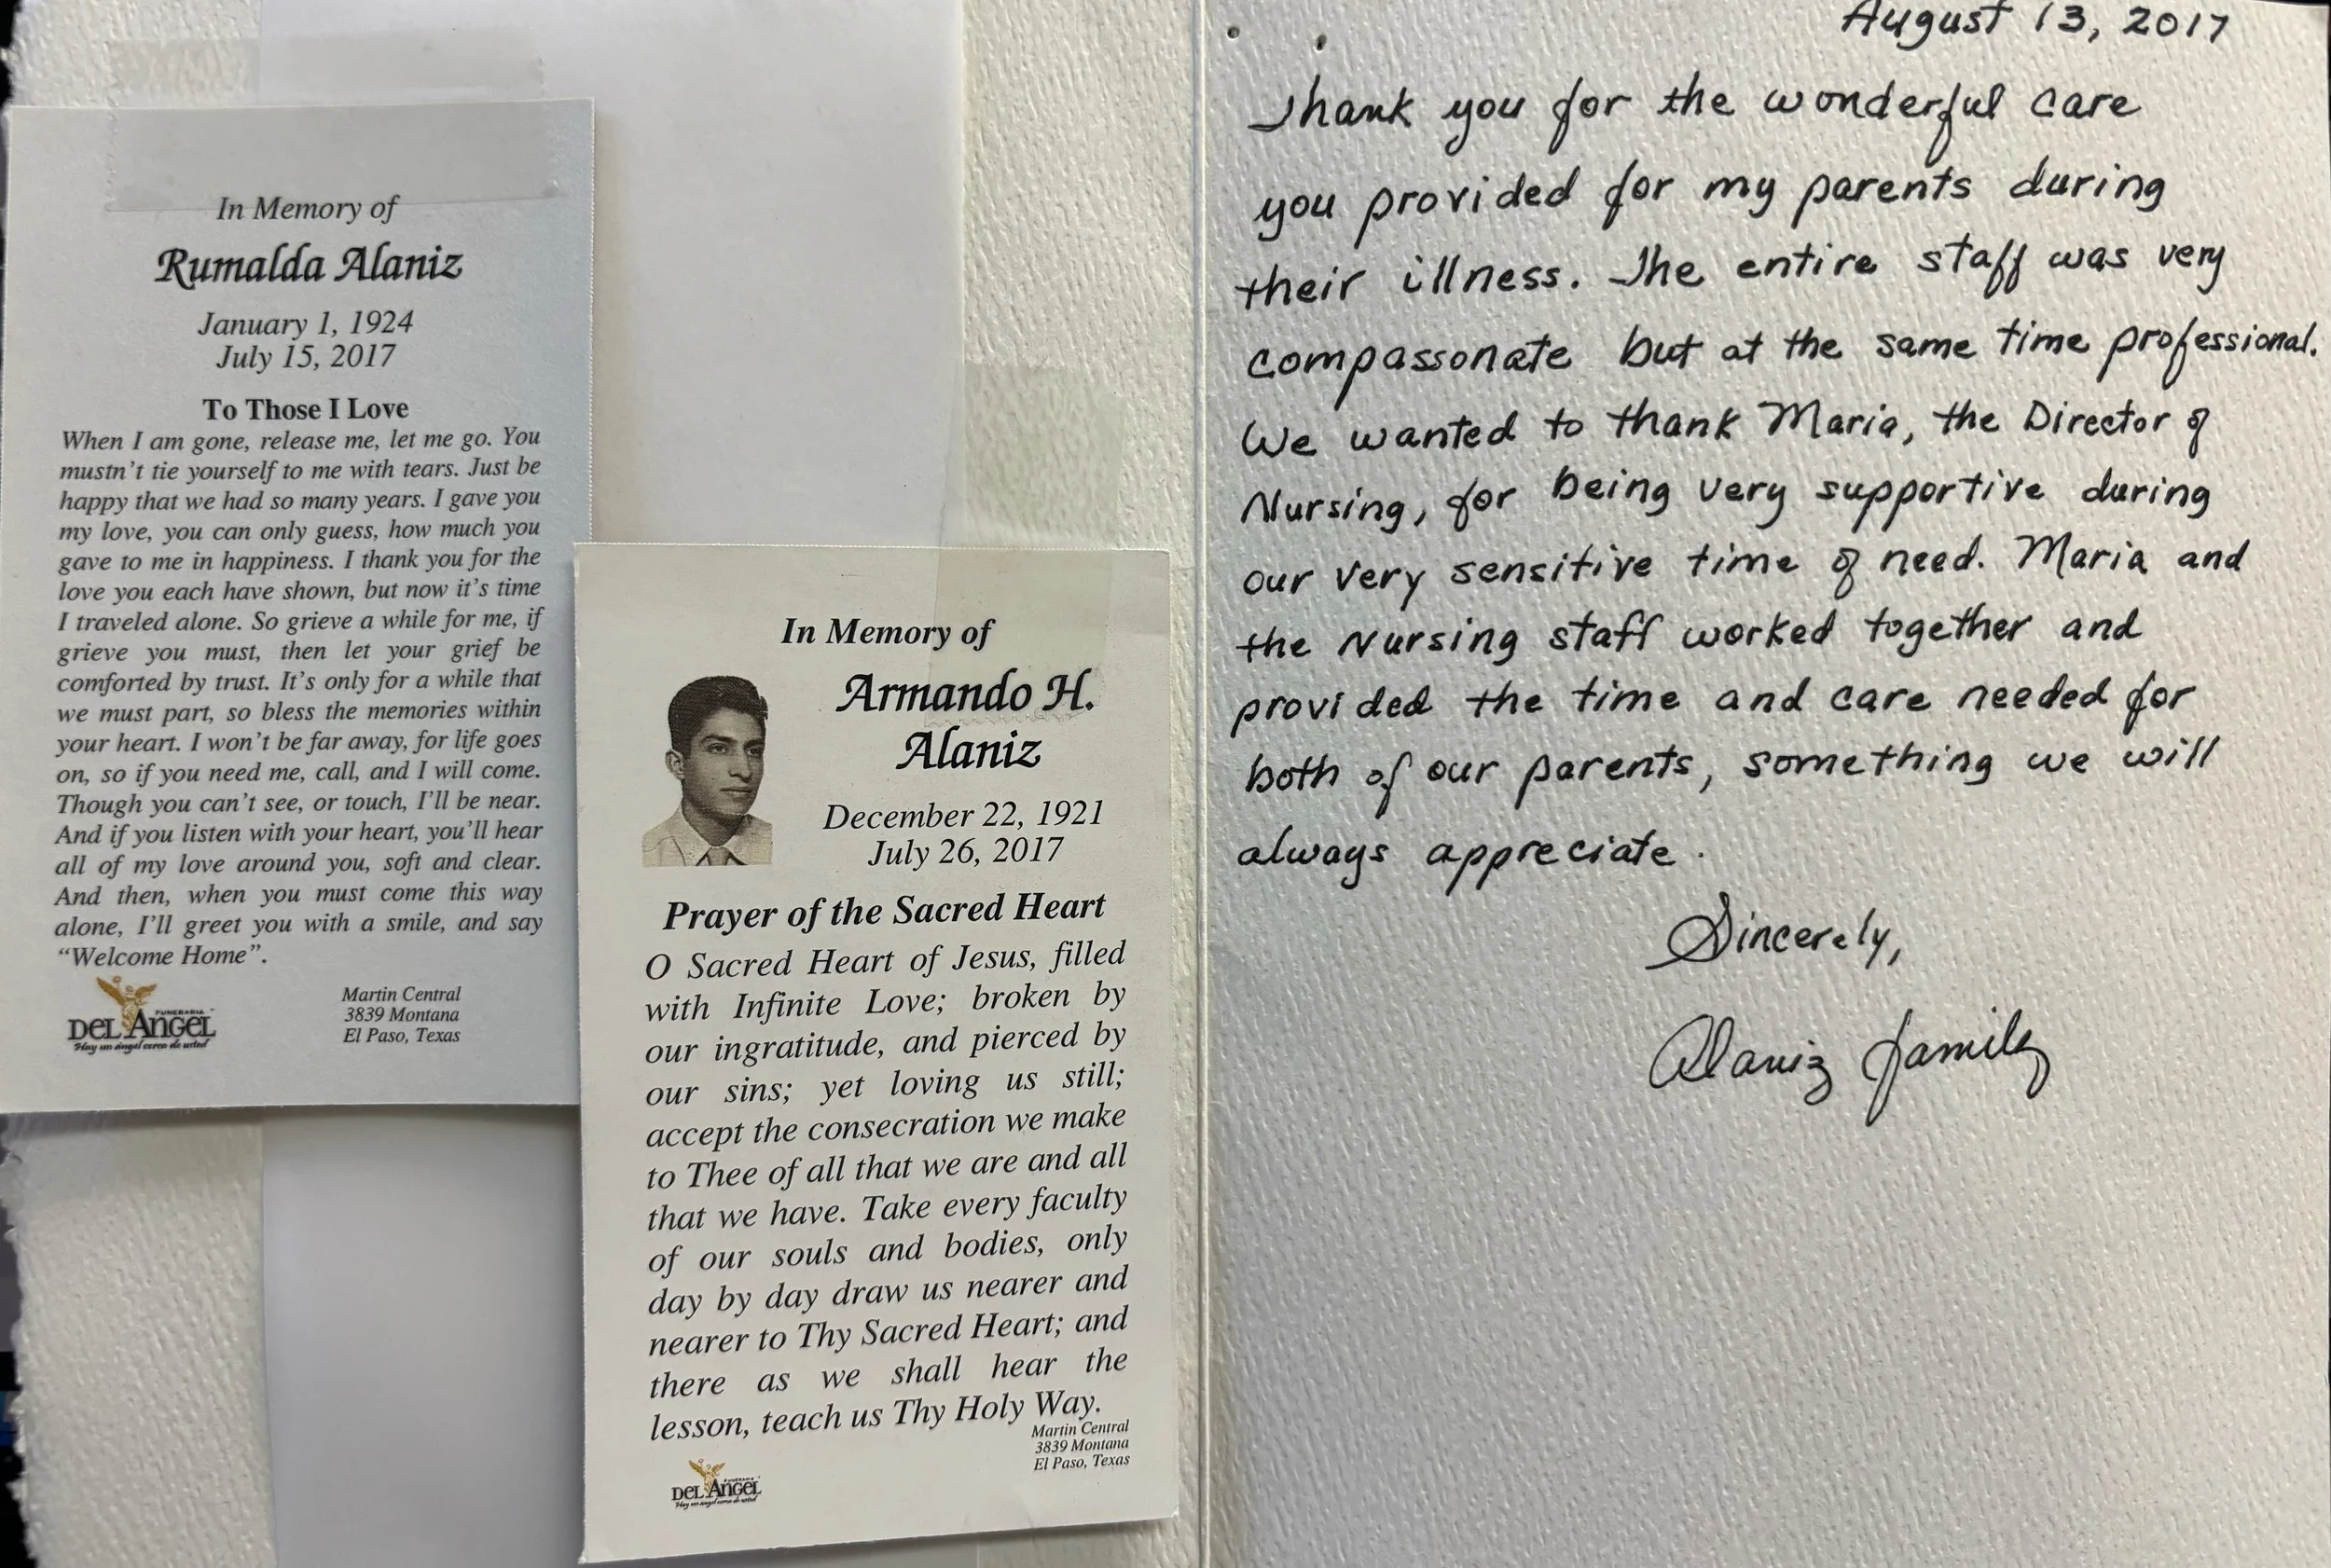 In Memory of
Rumalda Alaniz
January 1, 1924
July 15, 2017
To Those I Love
When I am gone, release me, let me go. You
mustn't tie yourself to me with tears. Just be
happy that we had so many years. I gave you
my love, you can only guess, how much you
gave to me in happiness. I thank you for the
love you each have shown, but now it's time
I traveled alone. So grieve a while for me, if
grieve you must, then let your grief be
comforted by trust. It's only for a while that
we must part, so bless the memories within
your heart. I won't be far away, for life goes
on, so if you need me, call, and I will come.
Though you can't see, or touch, I'll be near.
And if you listen with your heart, you'll hear
all of my love around you, soft and clear.
And then, when you must come this way
alone, I'll greet you with a smile, and say
“Welcome Home”.
FUNERARIA
DEL ANGEL
Hay un ángel cerca de usted
Martin Central
3839 Montana
El Paso, Texas
In Memory of
Armando H.
Alaniz
December 22, 1921
July 26, 2017
Prayer of the Sacred Heart
O Sacred Heart of Jesus, filled
with Infinite Love; broken by
our ingratitude, and pierced by
our sins; yet loving us still;
accept the consecration we make
to Thee of all that we are and all
that we have. Take every faculty
of our souls and bodies, only
day by day draw us nearer and
nearer to Thy Sacred Heart; and
there as we shall hear the
lesson, teach us Thy Holy Way.
Martin Central
3839 Montana
El Paso, Texas
FUNERARIA
DEL ANGEL
Hay un ángel cerca de usted
August 13, 2017
Thank you for the wonderful care
you provided for my parents during
their illness. The entire staff was very
compassonate but at the same time professional.
We wanted to thank Maria, the Director of
Nursing, for being very supportive during
our very sensitive time of need. Maria and
the Nursing staff worked together and
provided the time and care needed for
both of our parents, something we will
always appreciate.
Sincerely,
Alaniz Family